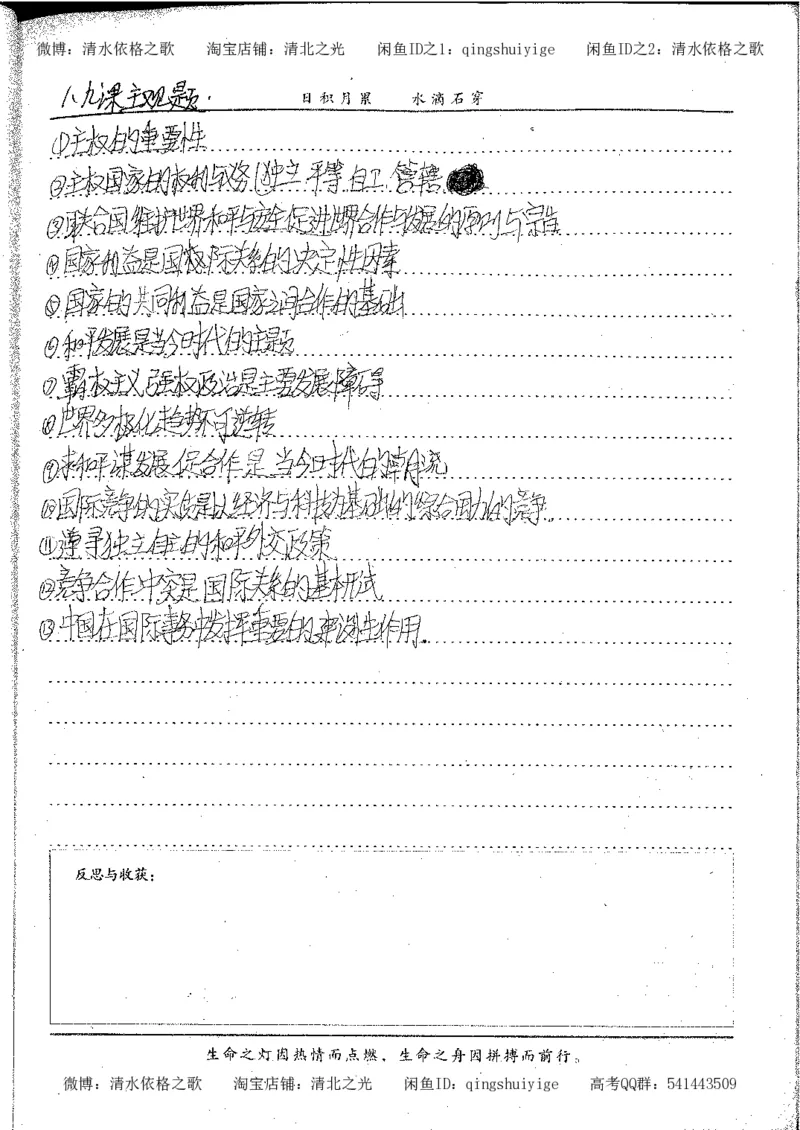 微博：清水依格之歌 淘宝店铺：清北之光 闲鱼ID之1：qingshuiyige 闲鱼ID之2：清水依格之歌
八九课主观题．
日积月累 水滴石穿
①主权的重要性
②主权国家的权利与义务 独立 平等 自卫 管辖
③联合国维护世界和平与安全促进世界合作与发展的原则与宗旨
④国家利益是国际关系的决定性因素
⑤国家的共同利益是国家之间合作的基础
⑥和平发展是当今时代的主题
⑦霸权主义强权政治是主要发展障碍
⑧世界多极化趋势不可逆转
⑨求和平谋发展促合作是当今时代的潮流
⑩国际竞争的实质是以经济与科技为基础的综合国力的竞争
⑪遵寻独立自主的和平外交政策
⑫竞争合作冲突是国际关系的基本形式
⑬中国在国际事务中发挥重要的建设性作用．
反思与收获：
生命之灯因热情而点燃，生命之舟因拼搏而前行。
微博：清水依格之歌 淘宝店铺：清北之光 闲鱼ID：qingshuiyige 高考QQ群：541443509